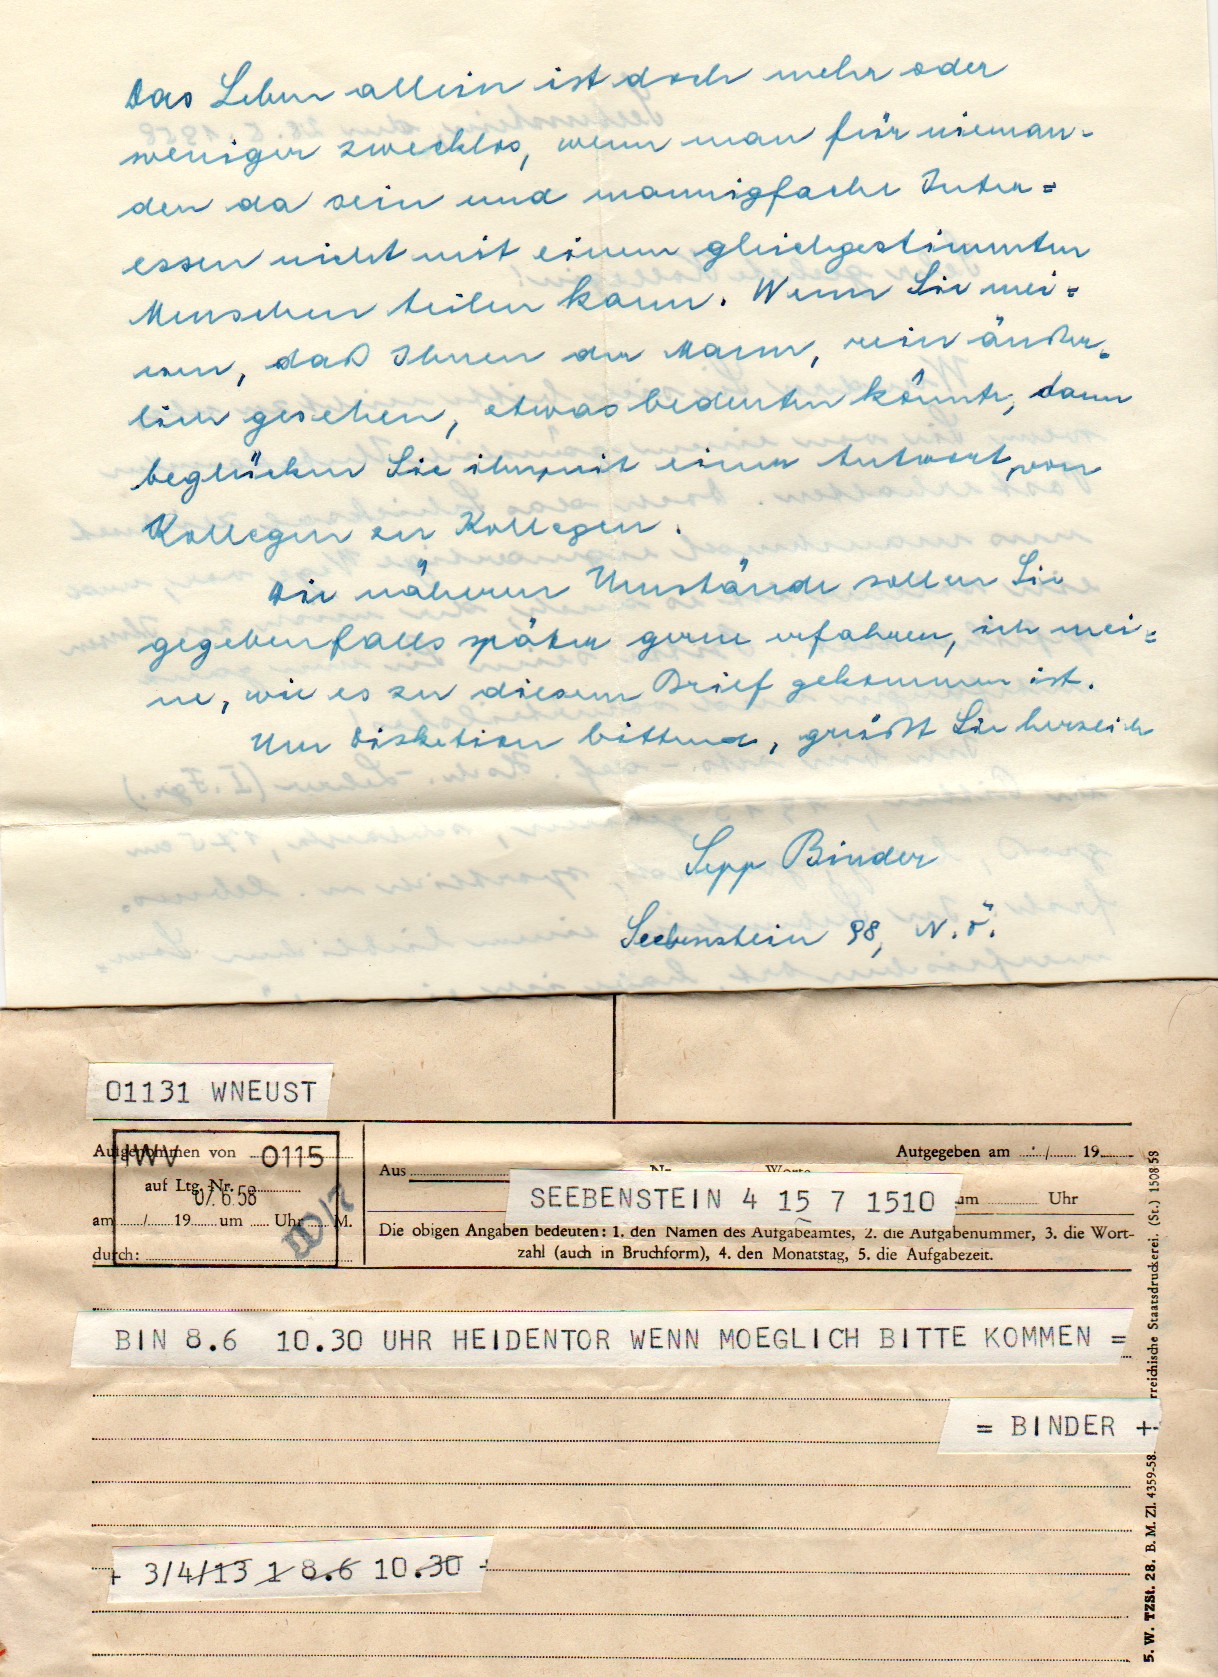 Das Leben allein ist doch mehr oder
weniger zwecklos, wenn man für nieman-
den da sein und mannigfache Inter=
essen nicht mit einem gleichgestimmten
Menschen teilen kann. Wenn Sie mei=
nen, daß Ihnen der Mann, rein äußer-
lich gesehen, etwas bedeuten könnte, dann
beglücken Sie ihn mit einer Antwort von
Kollegin zu Kollegen.
Die näheren Umstände sollen Sie
gegebenfalls später gerne erfahren, ich mei=
ne, wie es zu diesem Brief gekommen ist.
Um Diskretion bittend, grüßt Sie herzlich
Sepp Binder
Seebenstein 98, N.Ö.
01131 WNEUST
Aufgenommen von
IWV 0115
auf Ltg. Nr.
07.6.58
am / 19 um Uhr M.
durch:
Aus Nr. Worte
Aufgegeben am / 19
SEEBENSTEIN 4 15 7 1510
um Uhr
Die obigen Angaben bedeuten: 1. den Namen des Aufgabeamtes, 2. die Aufgabenummer, 3. die Wort-
zahl (auch in Bruchform), 4. den Monatstag, 5. die Aufgabezeit.
BIN 8.6 10.30 UHR HEIDENTOR WENN MOEGLICH BITTE KOMMEN =
= BINDER +
+ 3/4/13 1 8.6 10.30 +
5. W. TZSt. 28. B. M. Zl. 4359-58. rreichische Staatsdruckerei. (St.) 1508 58